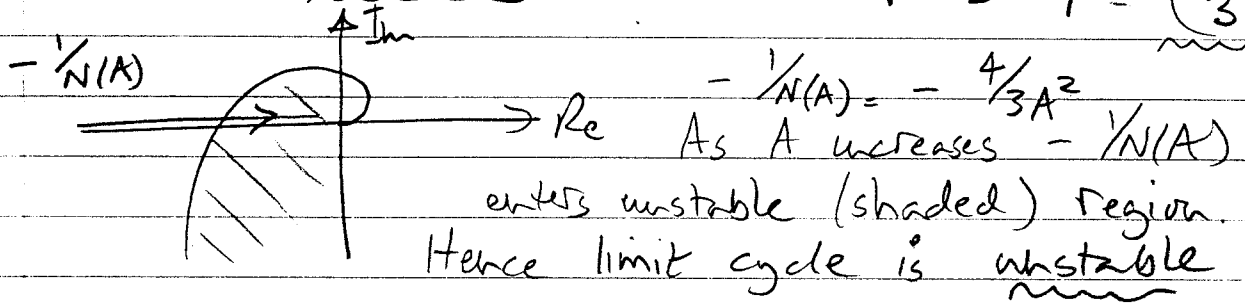 3
Im
- 1/N(A)
- 1/N(A) = - 4/3A²
Re As A increases - 1/N(A)
enters unstable (shaded) region.
Hence limit cycle is unstable